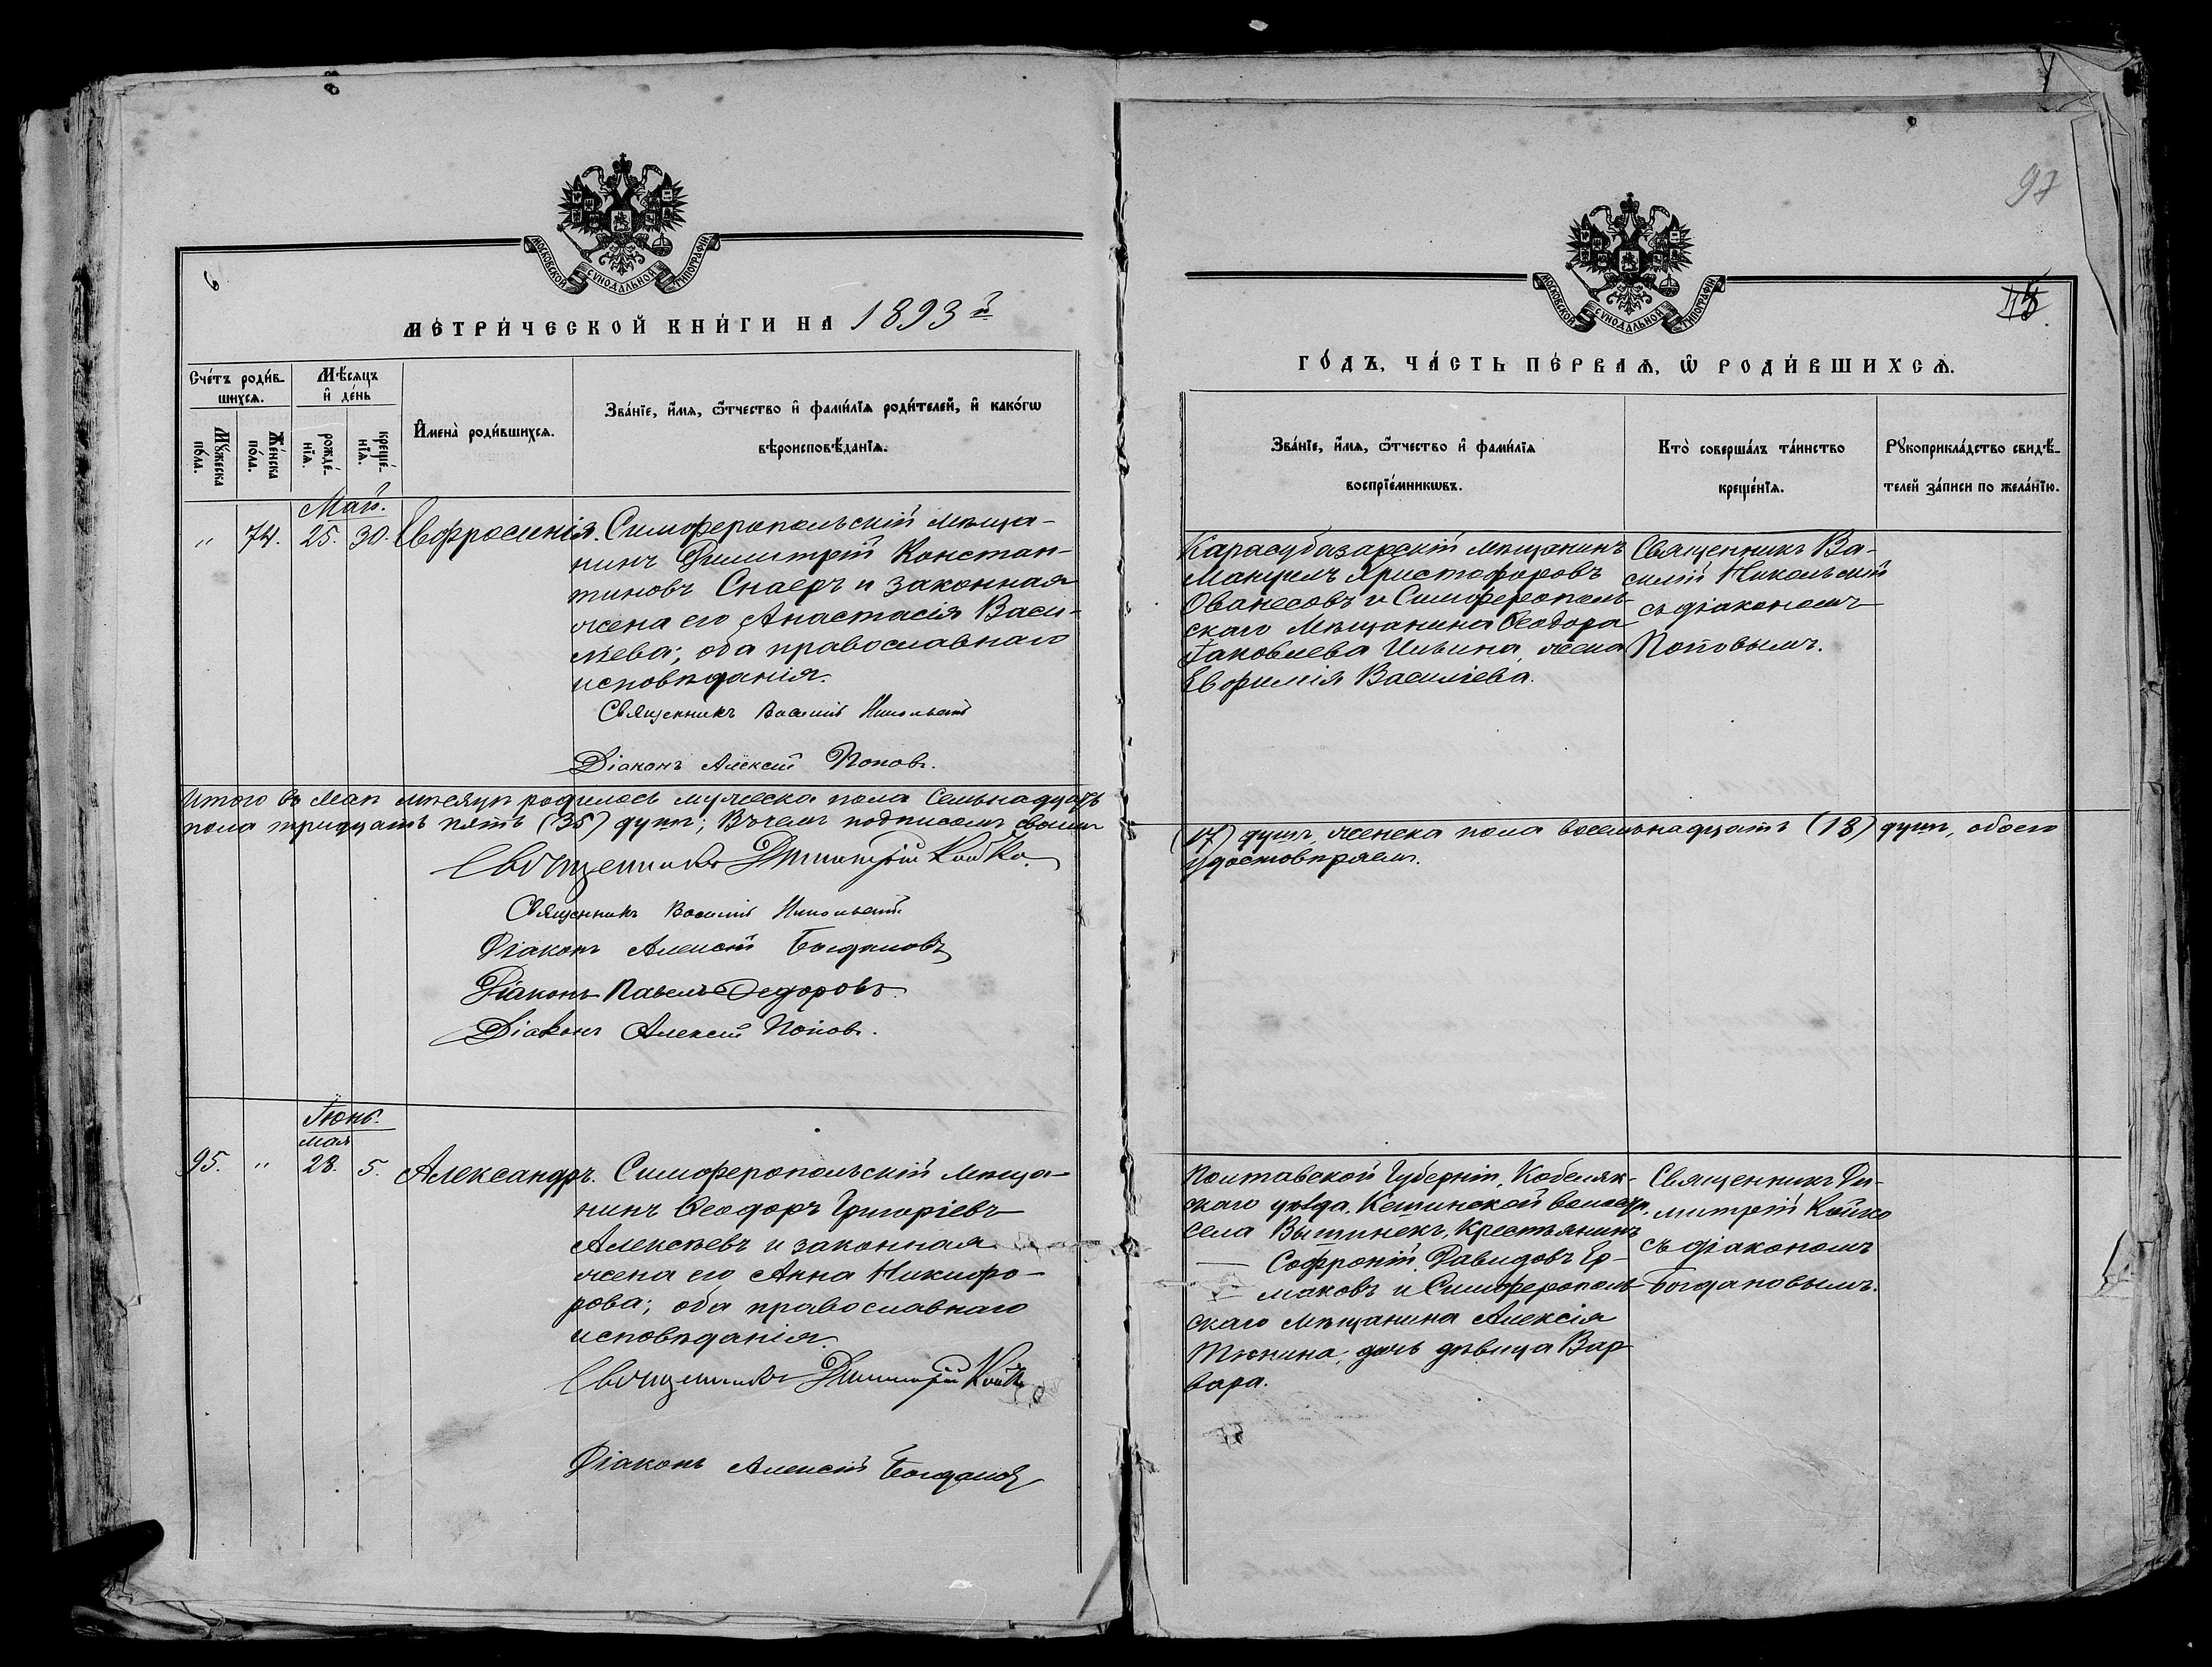 97
6
МОСКОВСКОЙ СѴНОДАЛЬНОЙ ТИПОГРАФІИ
МЕТРИ́ЧЕСКОЙ КНИ́ГИ НА 1893 й
Сче́тъ роди́вшихсѧ.
Мѹ́жеска по́ла.
Же́нска по́ла.
Мѣ́сѧцъ и҆ де́нь
рожде́нїѧ.
креще́нїѧ.
И҆мена̀ роди́вшихсѧ.
Зва́нїе, и҆́мѧ, ѻ҆́тчество и҆ фами́лїѧ роди́телей, и҆ како́гѡ
вѣроисповѣ́данїѧ.
Май.
" 74. 25. 30. Евфросинія. Симферопольскій мѣща-
нинъ Димитрій Констан-
тиновъ Снаеръ и законная
жена его Анастасія Васи-
льева; оба православнаго
исповѣданія.
Священникъ Василій Никольскій
Діаконъ Алексій Поповъ.
Итого въ маѣ мѣсяцѣ родилось мужеска пола семьнадцать
пола тридцать пять (35) душъ; Въ чемъ подписомъ своимъ
Священникъ Димитрій Койко.
Священникъ Василій Никольскій.
Діаконъ Алексій Богдановъ
Діаконъ Павелъ Федоровъ.
Діаконъ Алексій Поповъ.
Іюнь.
мая
95. " 28. 5. Александръ. Симферопольскій мѣща-
нинъ Ѳеодоръ Григоріевъ
Алексѣевъ и законная
жена его Анна Никифо-
рова; оба православнаго
исповѣданія.
Священникъ Димитрій Койко
Діаконъ Алексій Богдановъ
МОСКОВСКОЙ СѴНОДАЛЬНОЙ ТИПОГРАФІИ
ГО́ДЪ, ЧА́СТЬ ПЕ́РВАѦ, Ѡ҆ РОДИ́ВШИХСѦ.
Зва́нїе, и҆́мѧ, ѻ҆́тчество и҆ фами́лїѧ
воспрїе́мникѡвъ.
Кто̀ соверша́лъ та́инство
креще́нїѧ.
Рѹкоприкла́дство свидѣ́-
телей за́писи по жела́нїю.
Карасубазарскій мѣщанинъ
Мануилъ Христофоровъ
Ованесовъ и Симферополь-
скаго мѣщанина Ѳеодора
Іаковлева Ильина, жена
Евфимія Василіева.
Священникъ Ва-
силій Никольскій
съ діакономъ
Поповымъ.
(17) душъ, женска пола восемьнадцать (18) душъ, обоего
удостовѣряемъ.
Полтавской Губерніи, Кобеляк-
скаго уѣзда, волости,
села крестьянинъ
Софроній Давидовъ Ер-
маковъ и Симферополь-
скаго мѣщанина Алексія
Тюнина, дочь дѣвица Вар-
вара.
Священникъ Ди-
митрій Койко
съ діакономъ
Богдановымъ.